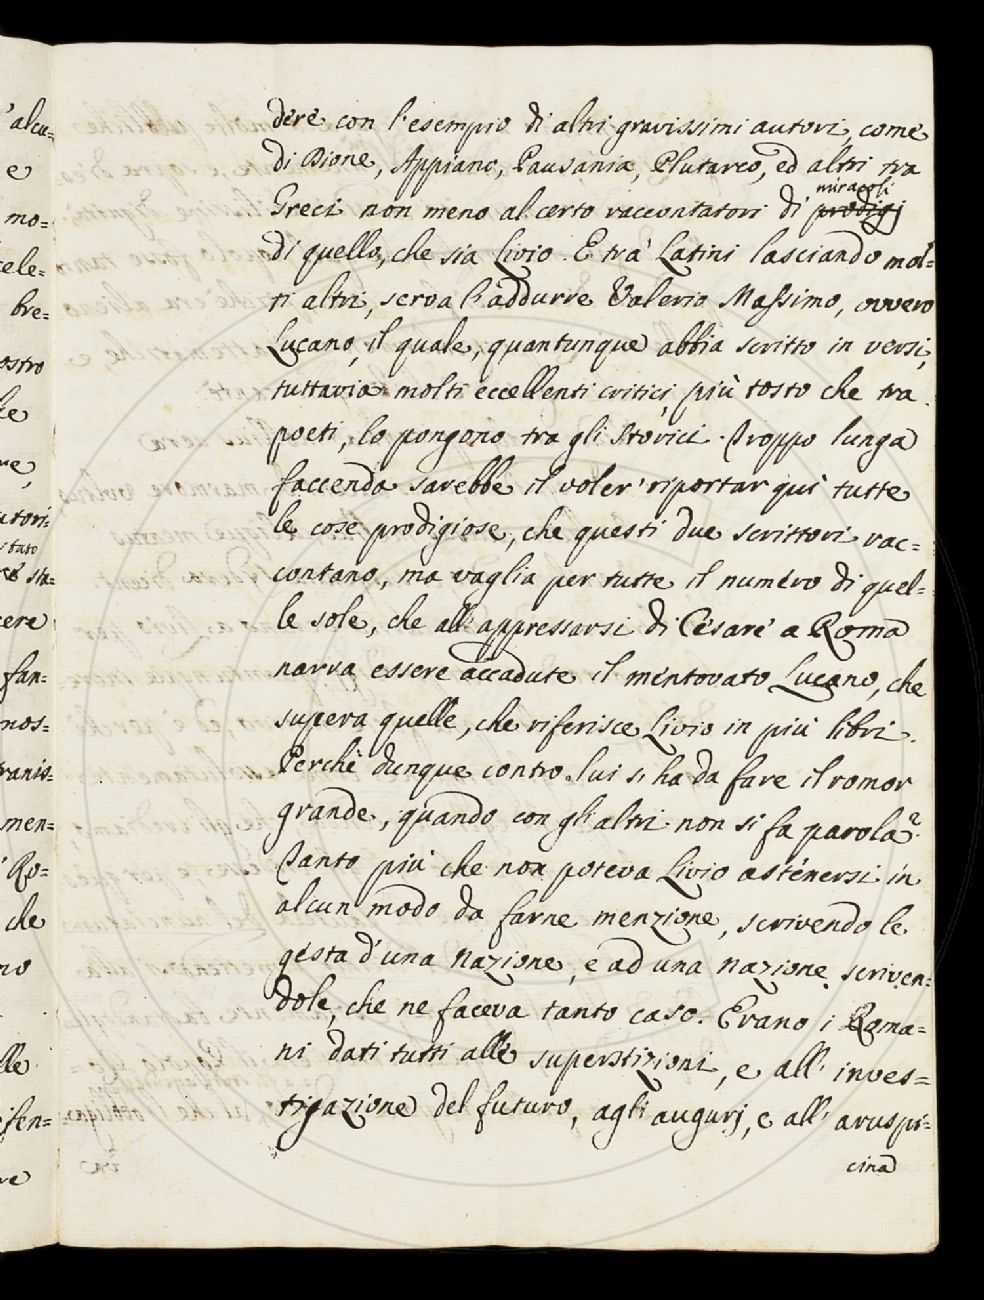 dere con l'esempio di altri gravissimi autori, come
di Dione, Appiano, Pausania, Plutarco, ed altri tra
miracoli
Greci non meno al certo raccontatori di prodigj
di quello, che sia Livio. E trà Latini lasciando mol=
ti altri, serva l'addurre Valerio Massimo, ovvero
Lucano, il quale, quantunque abbia scritto in versi,
tuttavia molti eccellenti critici più tosto che tra
poeti, lo pongono tra gli Storici. Troppo lunga
faccenda sarebbe il voler riportar quì tutte
le cose prodigiose, che questi due scrittori rac=
contano, ma vaglia per tutte il numero di quel=
le sole, che all'appressarsi di Cesare a Roma
narra essere accadute il mentovato Lucano, che
supera quelle, che riferisce Livio in più libri.
Perchè dunque contro lui si ha da fare il romor
grande, quando con gli altri non si fa parola?
Tanto più che non poteva Livio astenersi in
alcun modo da farne menzione, scrivendo le
gesta d'una Nazione, e ad una nazione scriven=
dole, che ne faceva tanto caso. Erano i Roma=
ni dati tutti alle superstizioni, e all' inves=
tigazione del futuro, agli augurj, e all' aruspi=
cina
'alcu=
e
mo=
cele=
bre=
ostro
utori=
stato
sta=
cere
fan=
nos=
ranis=
men=
Ro=
che
no
lle
ifen=
re